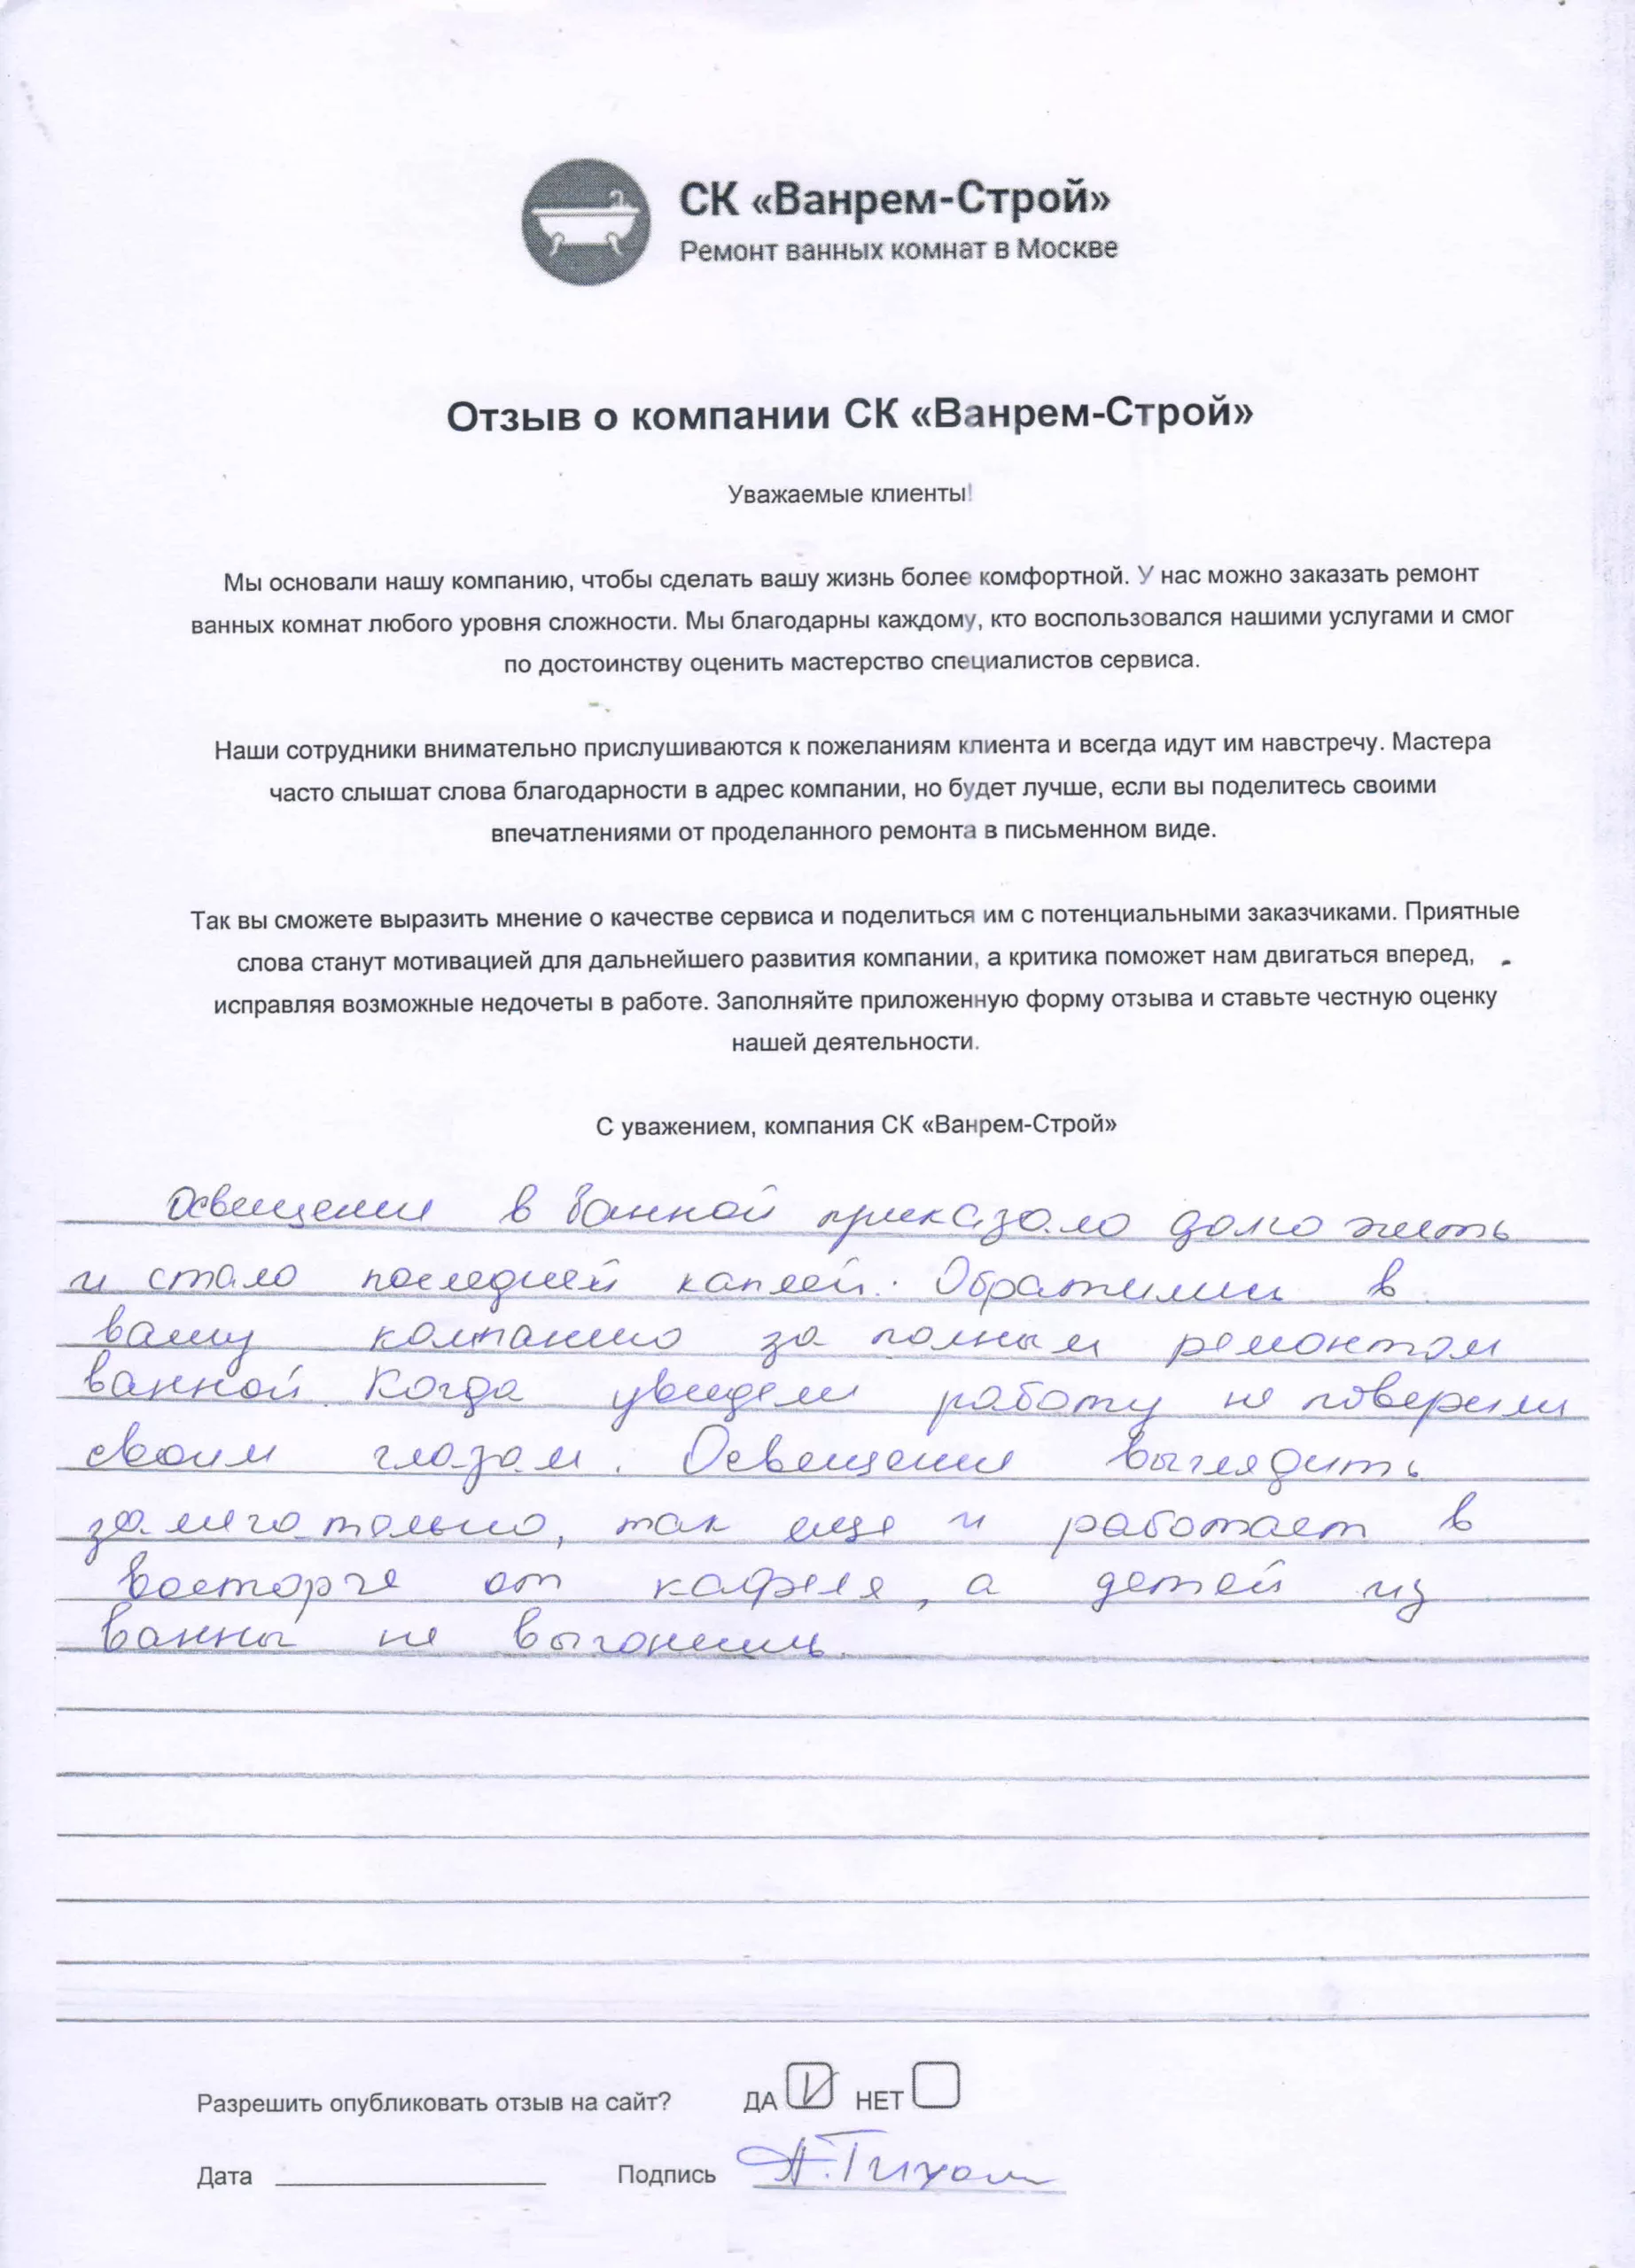 СК «Ванрем-Строй»
Ремонт ванных комнат в Москве
Отзыв о компании СК «Ванрем-Строй»
Уважаемые клиенты!
Мы основали нашу компанию, чтобы сделать вашу жизнь более комфортной. У нас можно заказать ремонт
ванных комнат любого уровня сложности. Мы благодарны каждому, кто воспользовался нашими услугами и смог
по достоинству оценить мастерство специалистов сервиса.
Наши сотрудники внимательно прислушиваются к пожеланиям клиента и всегда идут им навстречу. Мастера
часто слышат слова благодарности в адрес компании, но будет лучше, если вы поделитесь своими
впечатлениями от проделанного ремонта в письменном виде.
Так вы сможете выразить мнение о качестве сервиса и поделиться им с потенциальными заказчиками. Приятные
слова станут мотивацией для дальнейшего развития компании, а критика поможет нам двигаться вперед,
исправляя возможные недочеты в работе. Заполняйте приложенную форму отзыва и ставьте честную оценку
нашей деятельности.
С уважением, компания СК «Ванрем-Строй»
Освещение в ванной приказало долго жить
и стало последней каплей. Обратились в
вашу компанию за полным ремонтом
ванной. Когда увидели работу не поверили
своим глазам. Освещение выглядить
замигательно, так еще и работает в
восторге от кафеля, а детей из
ванны не выгонишь.
Разрешить опубликовать отзыв на сайт? ДА НЕТ
Дата Подпись А.Тихом